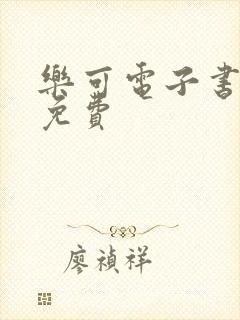 樂可電子書
免費
廖禎祥